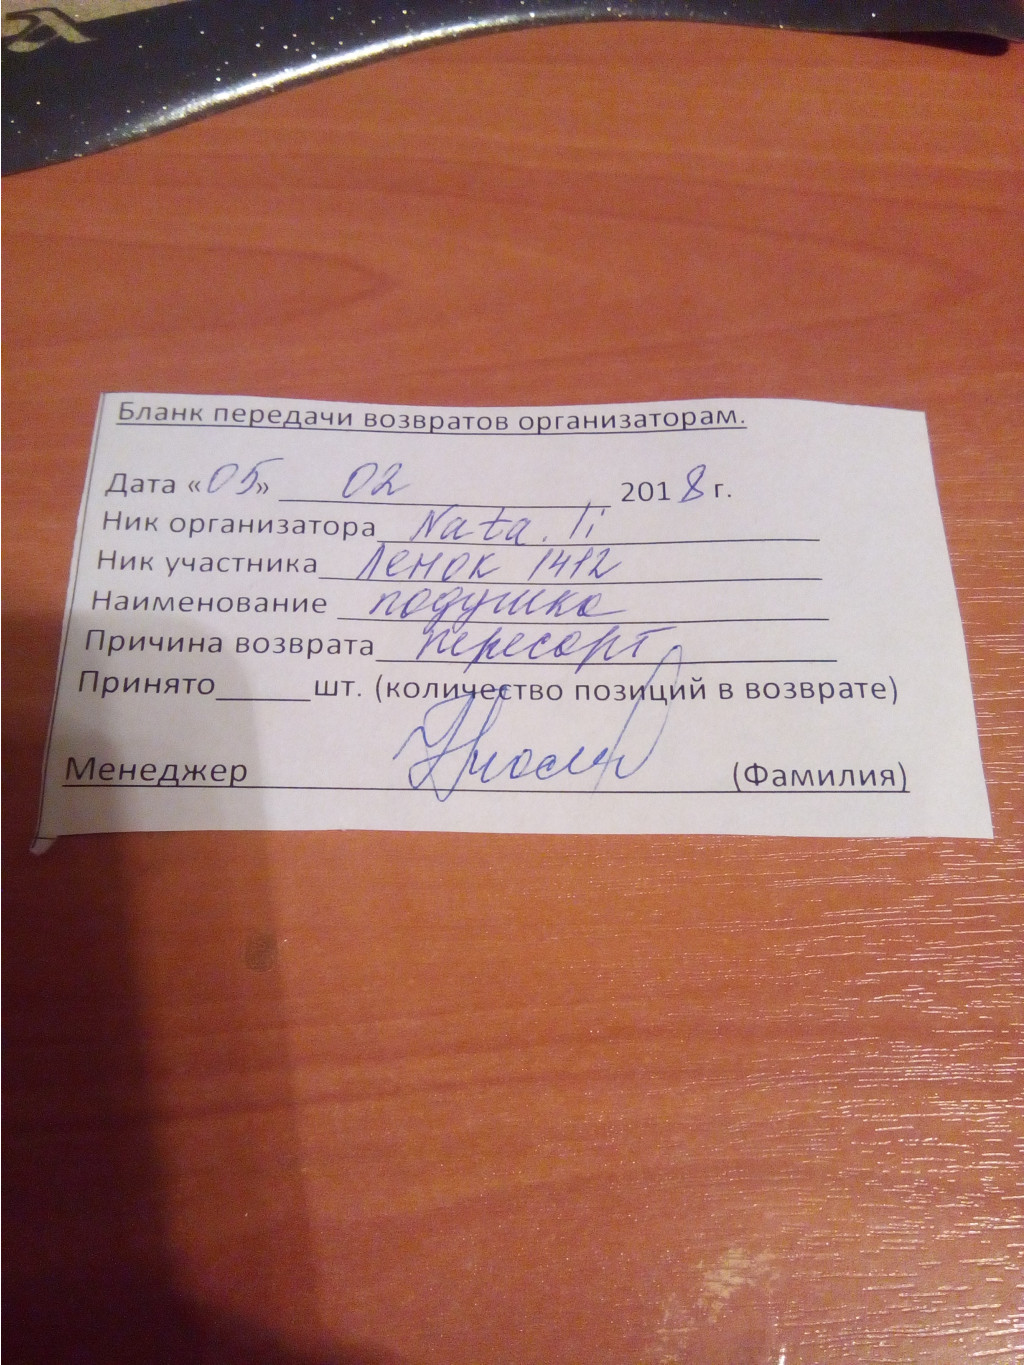 Бланк передачи возвратов организаторам.
Дата «05» 02 2018 г.
Ник организатора Nata.li
Ник участника Ленок 1412
Наименование подушка
Причина возврата пересорт
Принято______шт. (количество позиций в возврате)
Менеджер (Фамилия)